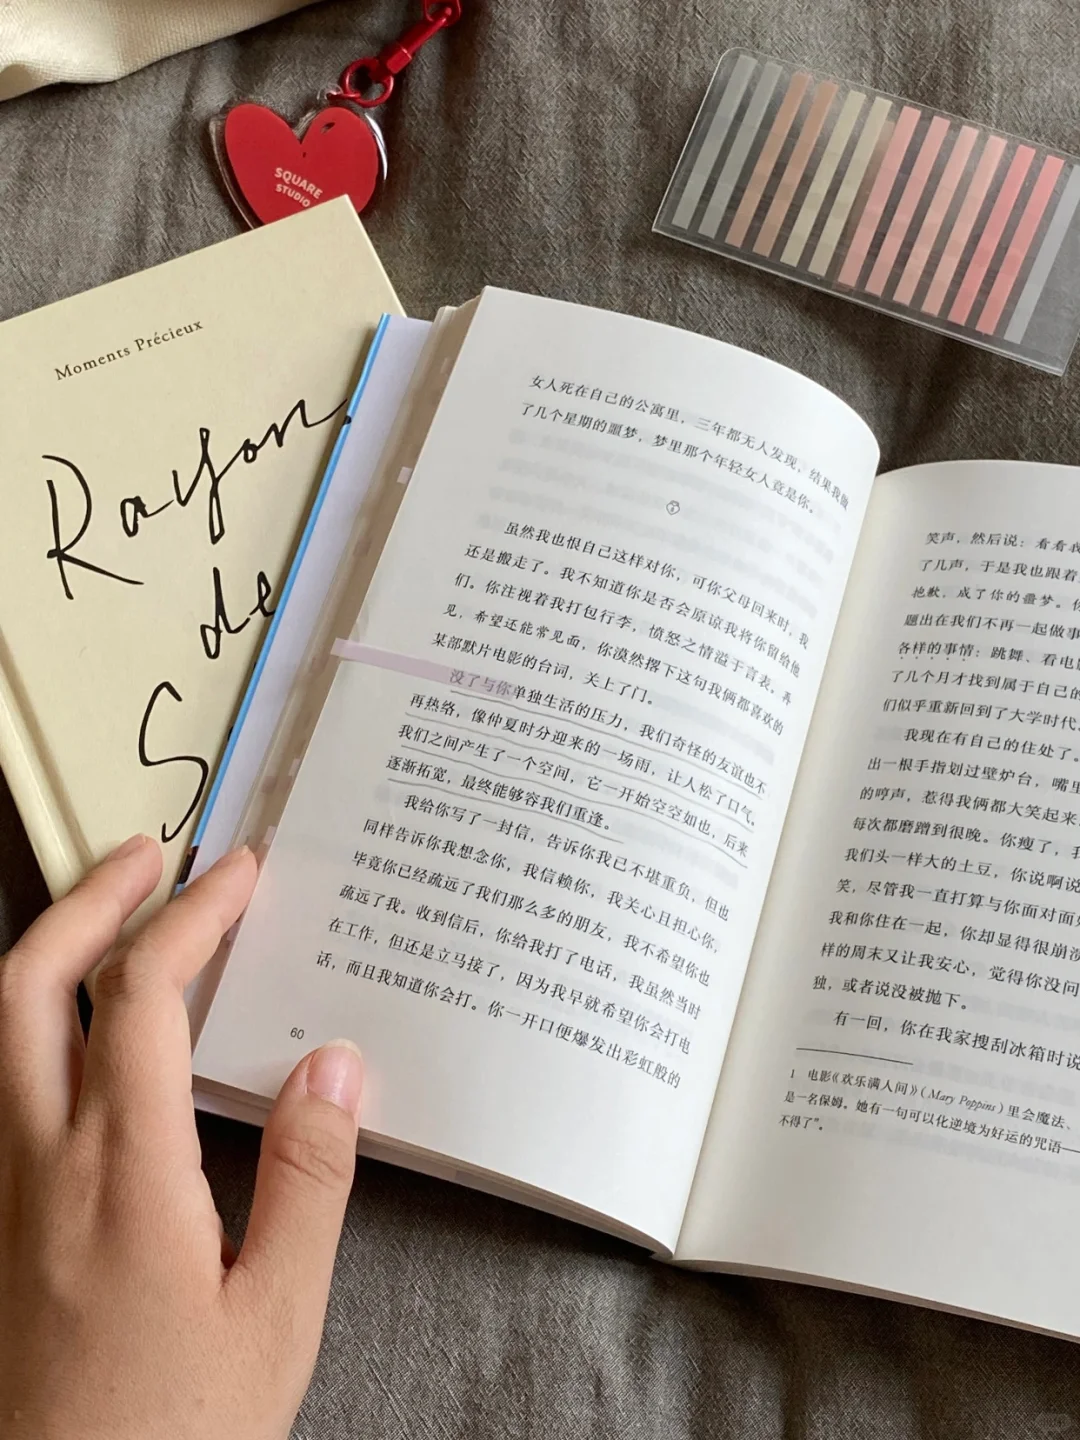 SQUARE
STUDIO
Moments Précieux
Rayon
de
S
女人死在自己的公寓里，三年都无人发现，结果我做
了几个星期的噩梦，梦里那个年轻女人竟是你。
虽然我也恨自己这样对你，可你父母回来时，我
还是搬走了。我不知道你是否会原谅我将你留给他
们。你注视着我打包行李，愤怒之情溢于言表。再
见，希望还能常见面，你漠然撂下这句我俩都喜欢的
某部默片电影的台词，关上了门。
没了与你单独生活的压力，我们奇怪的友谊也不
再热络，像仲夏时分迎来的一场雨，让人松了口气，
我们之间产生了一个空间，它一开始空空如也，后来
逐渐拓宽，最终能够容我们重逢。
我给你写了一封信，告诉你我已不堪重负，但也
同样告诉你我想念你，我信赖你，我关心且担心你，
毕竟你已经疏远了我们那么多的朋友，我不希望你也
疏远了我。收到信后，你给我打了电话，我虽然当时
在工作，但还是立马接了，因为我早就希望你会打电
话，而且我知道你会打。你一开口便爆发出彩虹般的
60
笑声，然后说：看看我
了几声，于是我也跟着
抱歉，成了你的噩梦。你
题出在我们不再一起做事
各样的事情：跳舞、看电影
了几个月才找到属于自己的
们似乎重新回到了大学时代
我现在有自己的住处了。
出一根手指划过壁炉台，嘴里
的哼声，惹得我俩都大笑起来
每次都磨蹭到很晚。你瘦了，我
我们头一样大的土豆，你说啊说
笑，尽管我一直打算与你面对面
我和你住在一起，你却显得很崩溃
样的周末又让我安心，觉得你没问
独，或者说没被抛下。
有一回，你在我家搜刮冰箱时说
1 电影《欢乐满人间》（Mary Poppins）里会魔法、
是一名保姆。她有一句可以化逆境为好运的咒语——
不得了”。